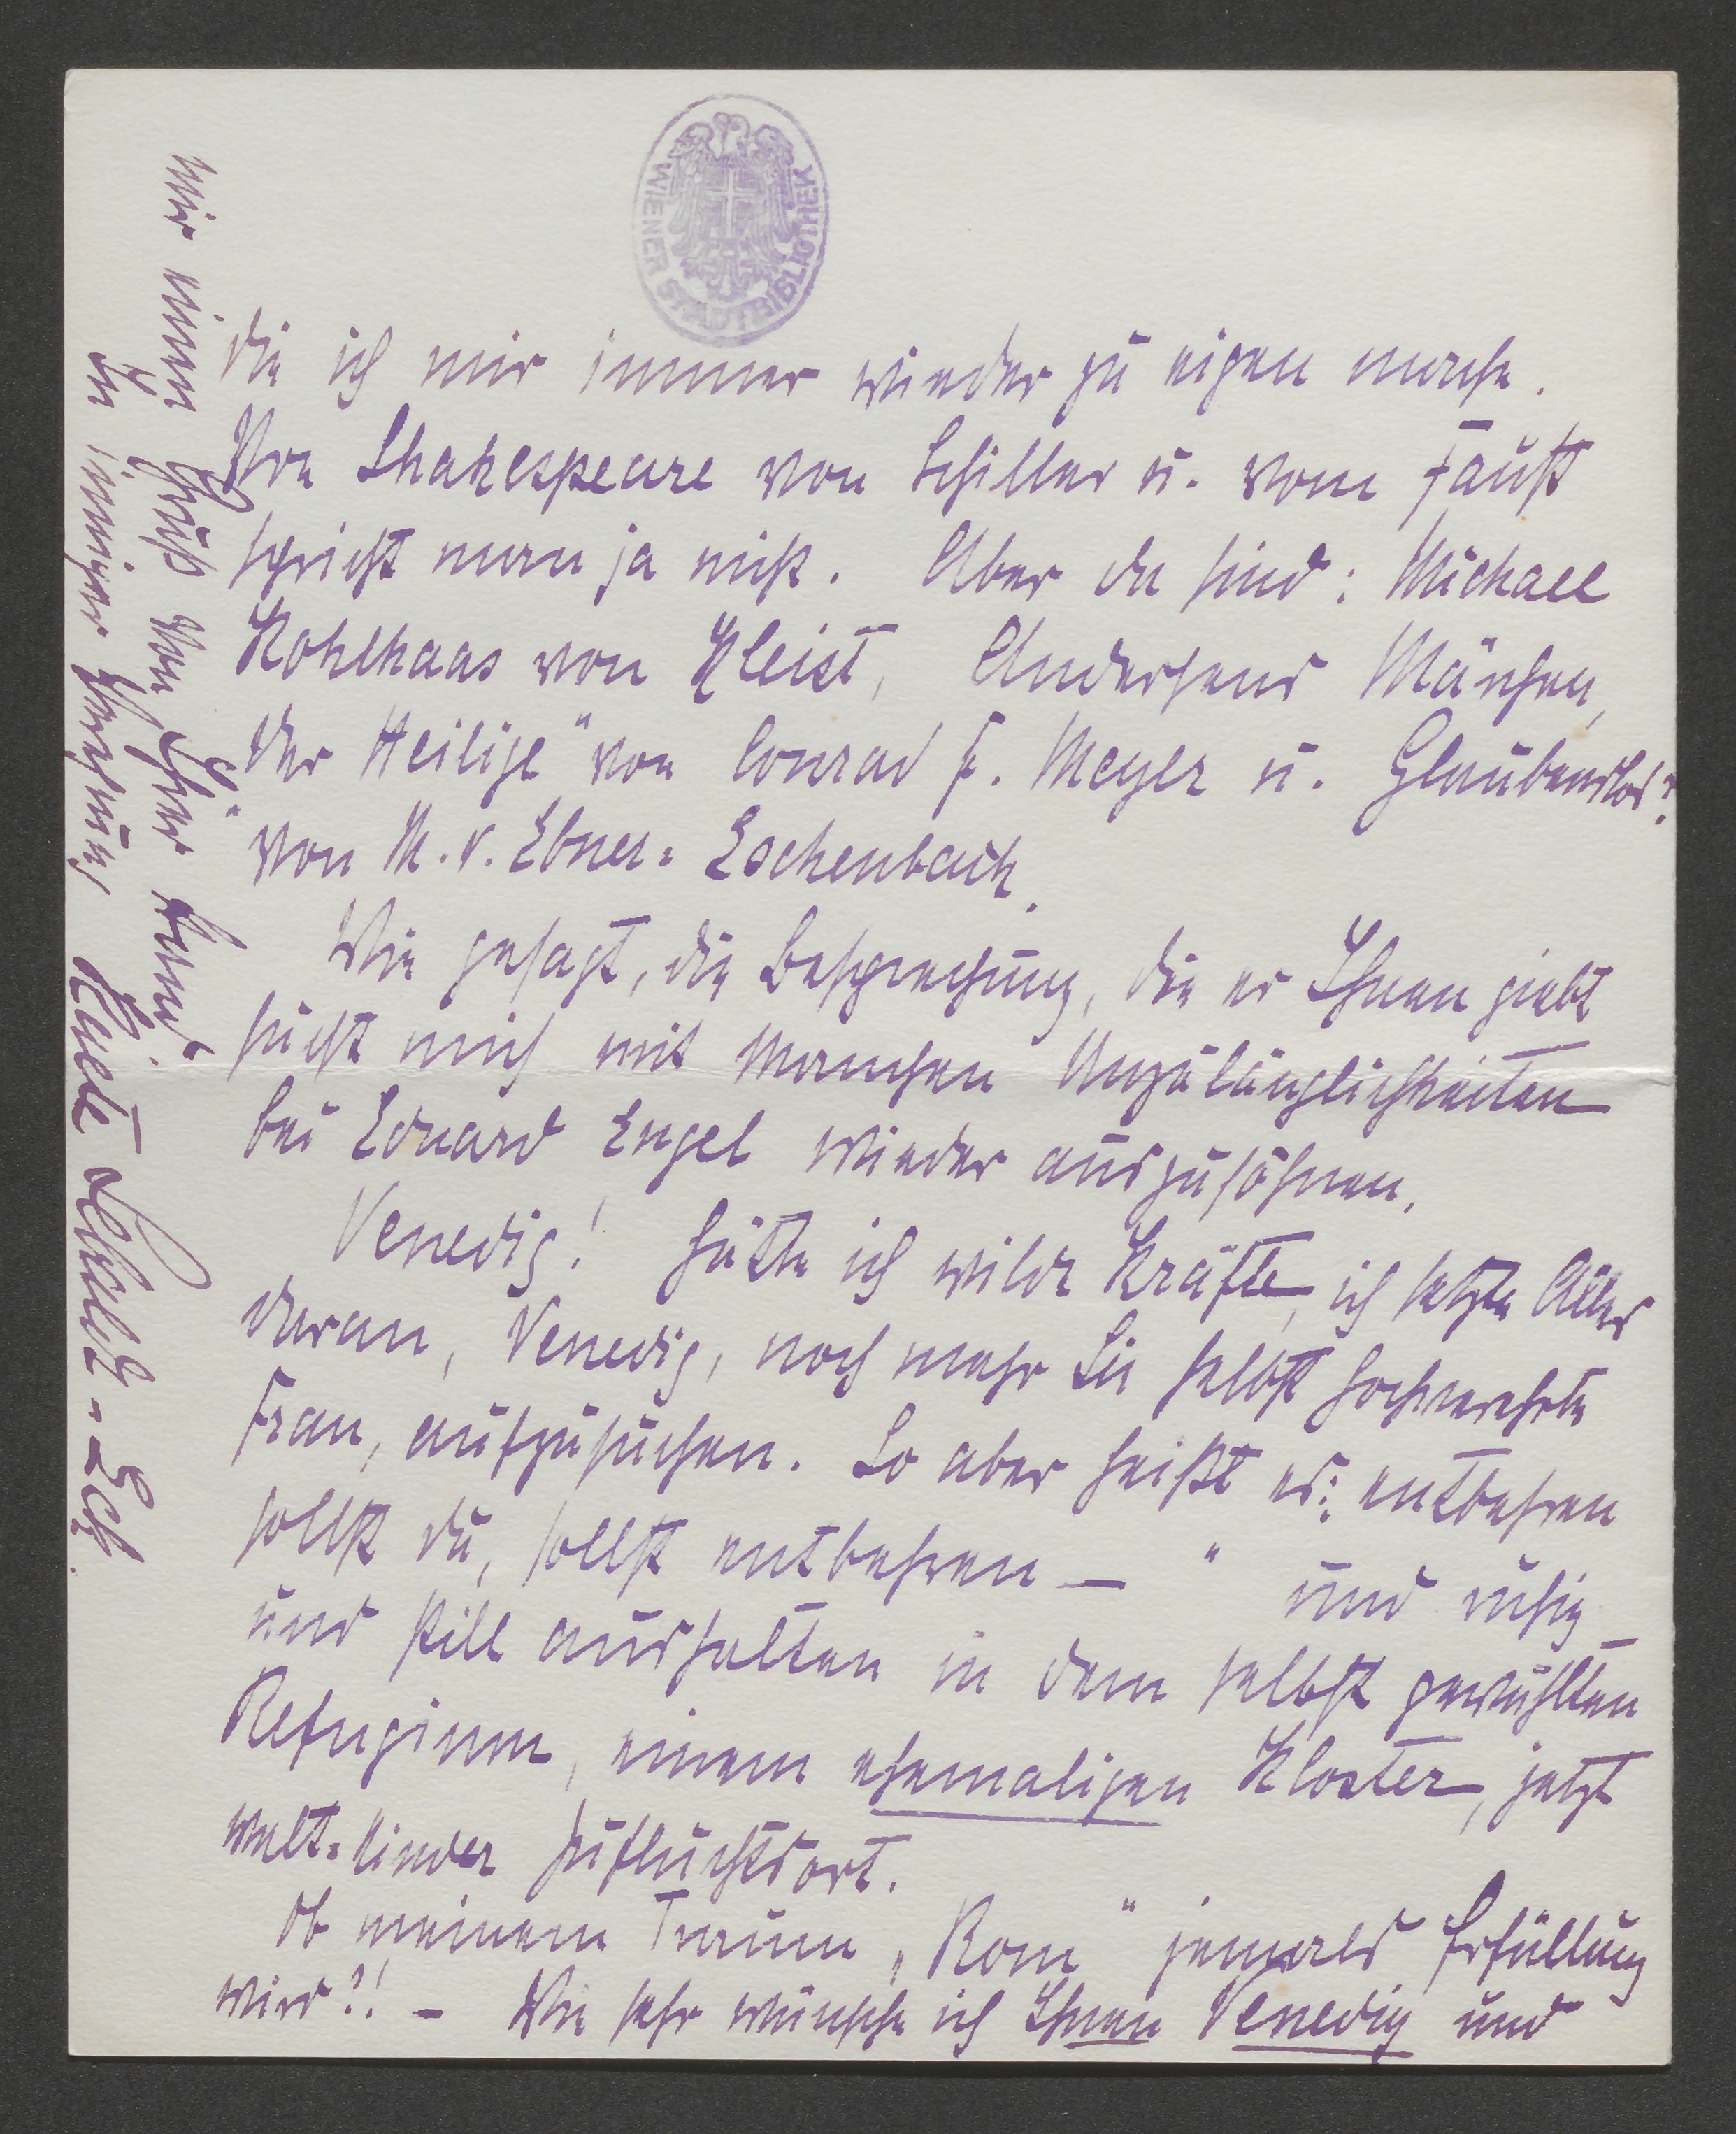 WIENER STADTBIBLIOTHEK
die ich mir immer wieder zu eigen mache.
Von Shakespeare von Schiller u. vom Faust
spricht man ja nicht. Aber da sind: Michael
Kohlhaas von Kleist, Andersens Märchen,
der Heilige" von Conrad F. Meyer u. Glaubenslos?
von M. v. Ebner-Eschenbach.
Wie gesagt, die Besprechung, die er Ihnen giebt
sucht mich mit manchen Unzulänglichkeiten
bei Eduard Engel wieder auszusöhnen.
Venedig! Hätte ich wilde Kräfte, ich setzte Alles
daran, Venedig, noch mehr Sie selbst hochverehrte
Frau, aufzusuchen. So aber heißt es: entbehren
sollst du, sollst entbehren — " und ruhig
und still aushalten in dem selbst gewählten
Refugium, einem ehemaligen Kloster, jetzt
Welt-Kinder Zufluchtsort.
Ob meinem Traum „Rom" jemals Erfüllung
wird?! – Wie sehr wünsche ich Ihnen Venedig und
mir einen Gruß von Ihrer Hand.
In inniger Verehrung